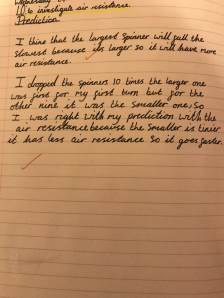 LO to investigate air resistance.
Prediction
I think that the largest spinner will fall the
slowest because its larger so it will have more
air resistance.
I dropped the spinners 10 times the larger one
was first for my first turn but for the
other nine it was the smaller one, so
I was right with my prediction with the
air resistance because the smaller is tinier
it has less air resistance so it goes faster.